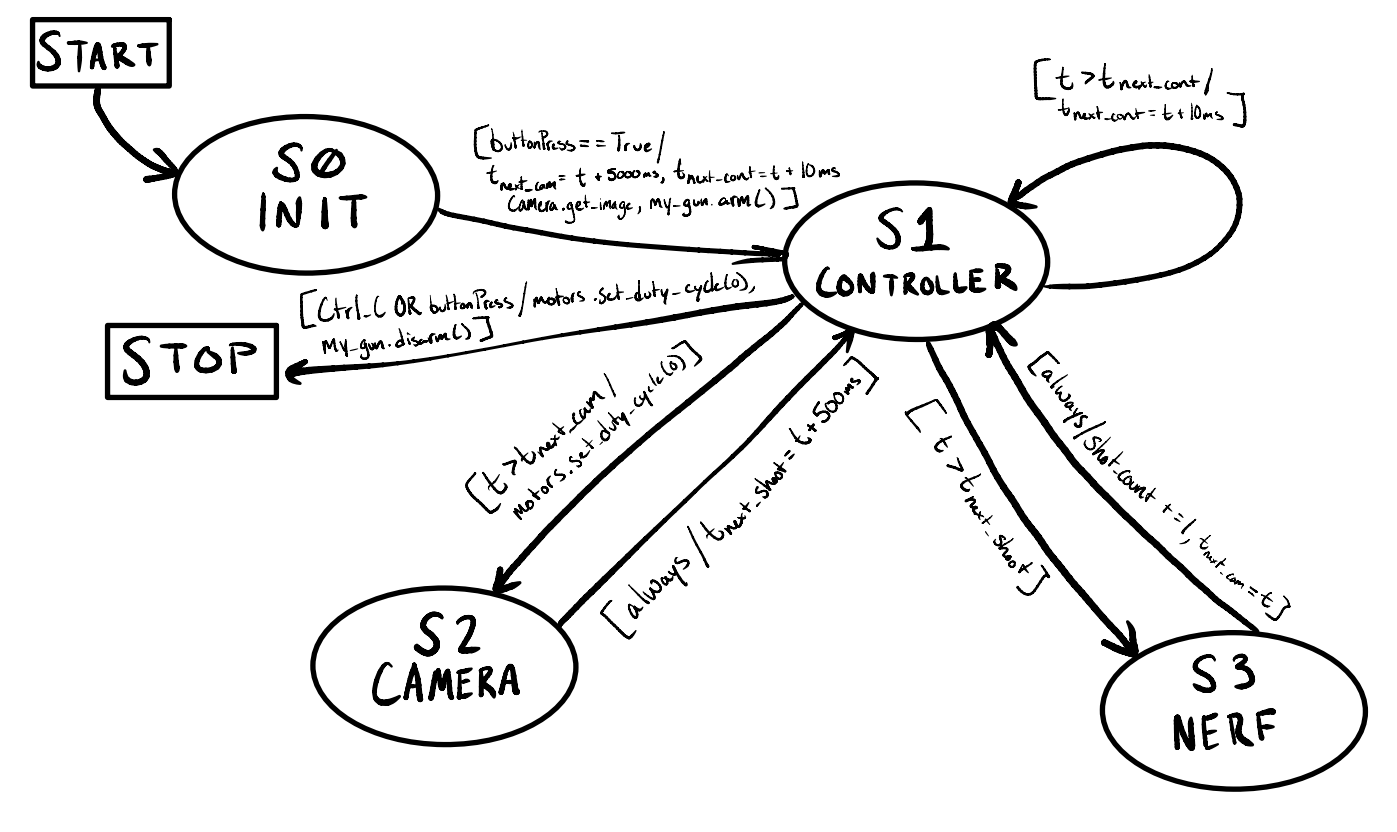 START
S0
INIT
[buttonPress == True /
t_next_cam = t + 5000ms, t_next_cont = t + 10ms
Camera.get_image, my-gun.arm()]
[t > t_next_cont /
t_next_cont = t + 10ms]
S1
CONTROLLER
[Ctrl_C OR buttonPress / motors.set_duty_cycle(0),
My-gun.disarm()]
STOP
[t > t_next_cam /
motors.set_duty_cycle(0)]
[always / t_next_shoot = t + 500ms]
[t > t_next_shoot]
[always / shot_count += 1, t_next_cam = t]
S2
CAMERA
S3
NERF